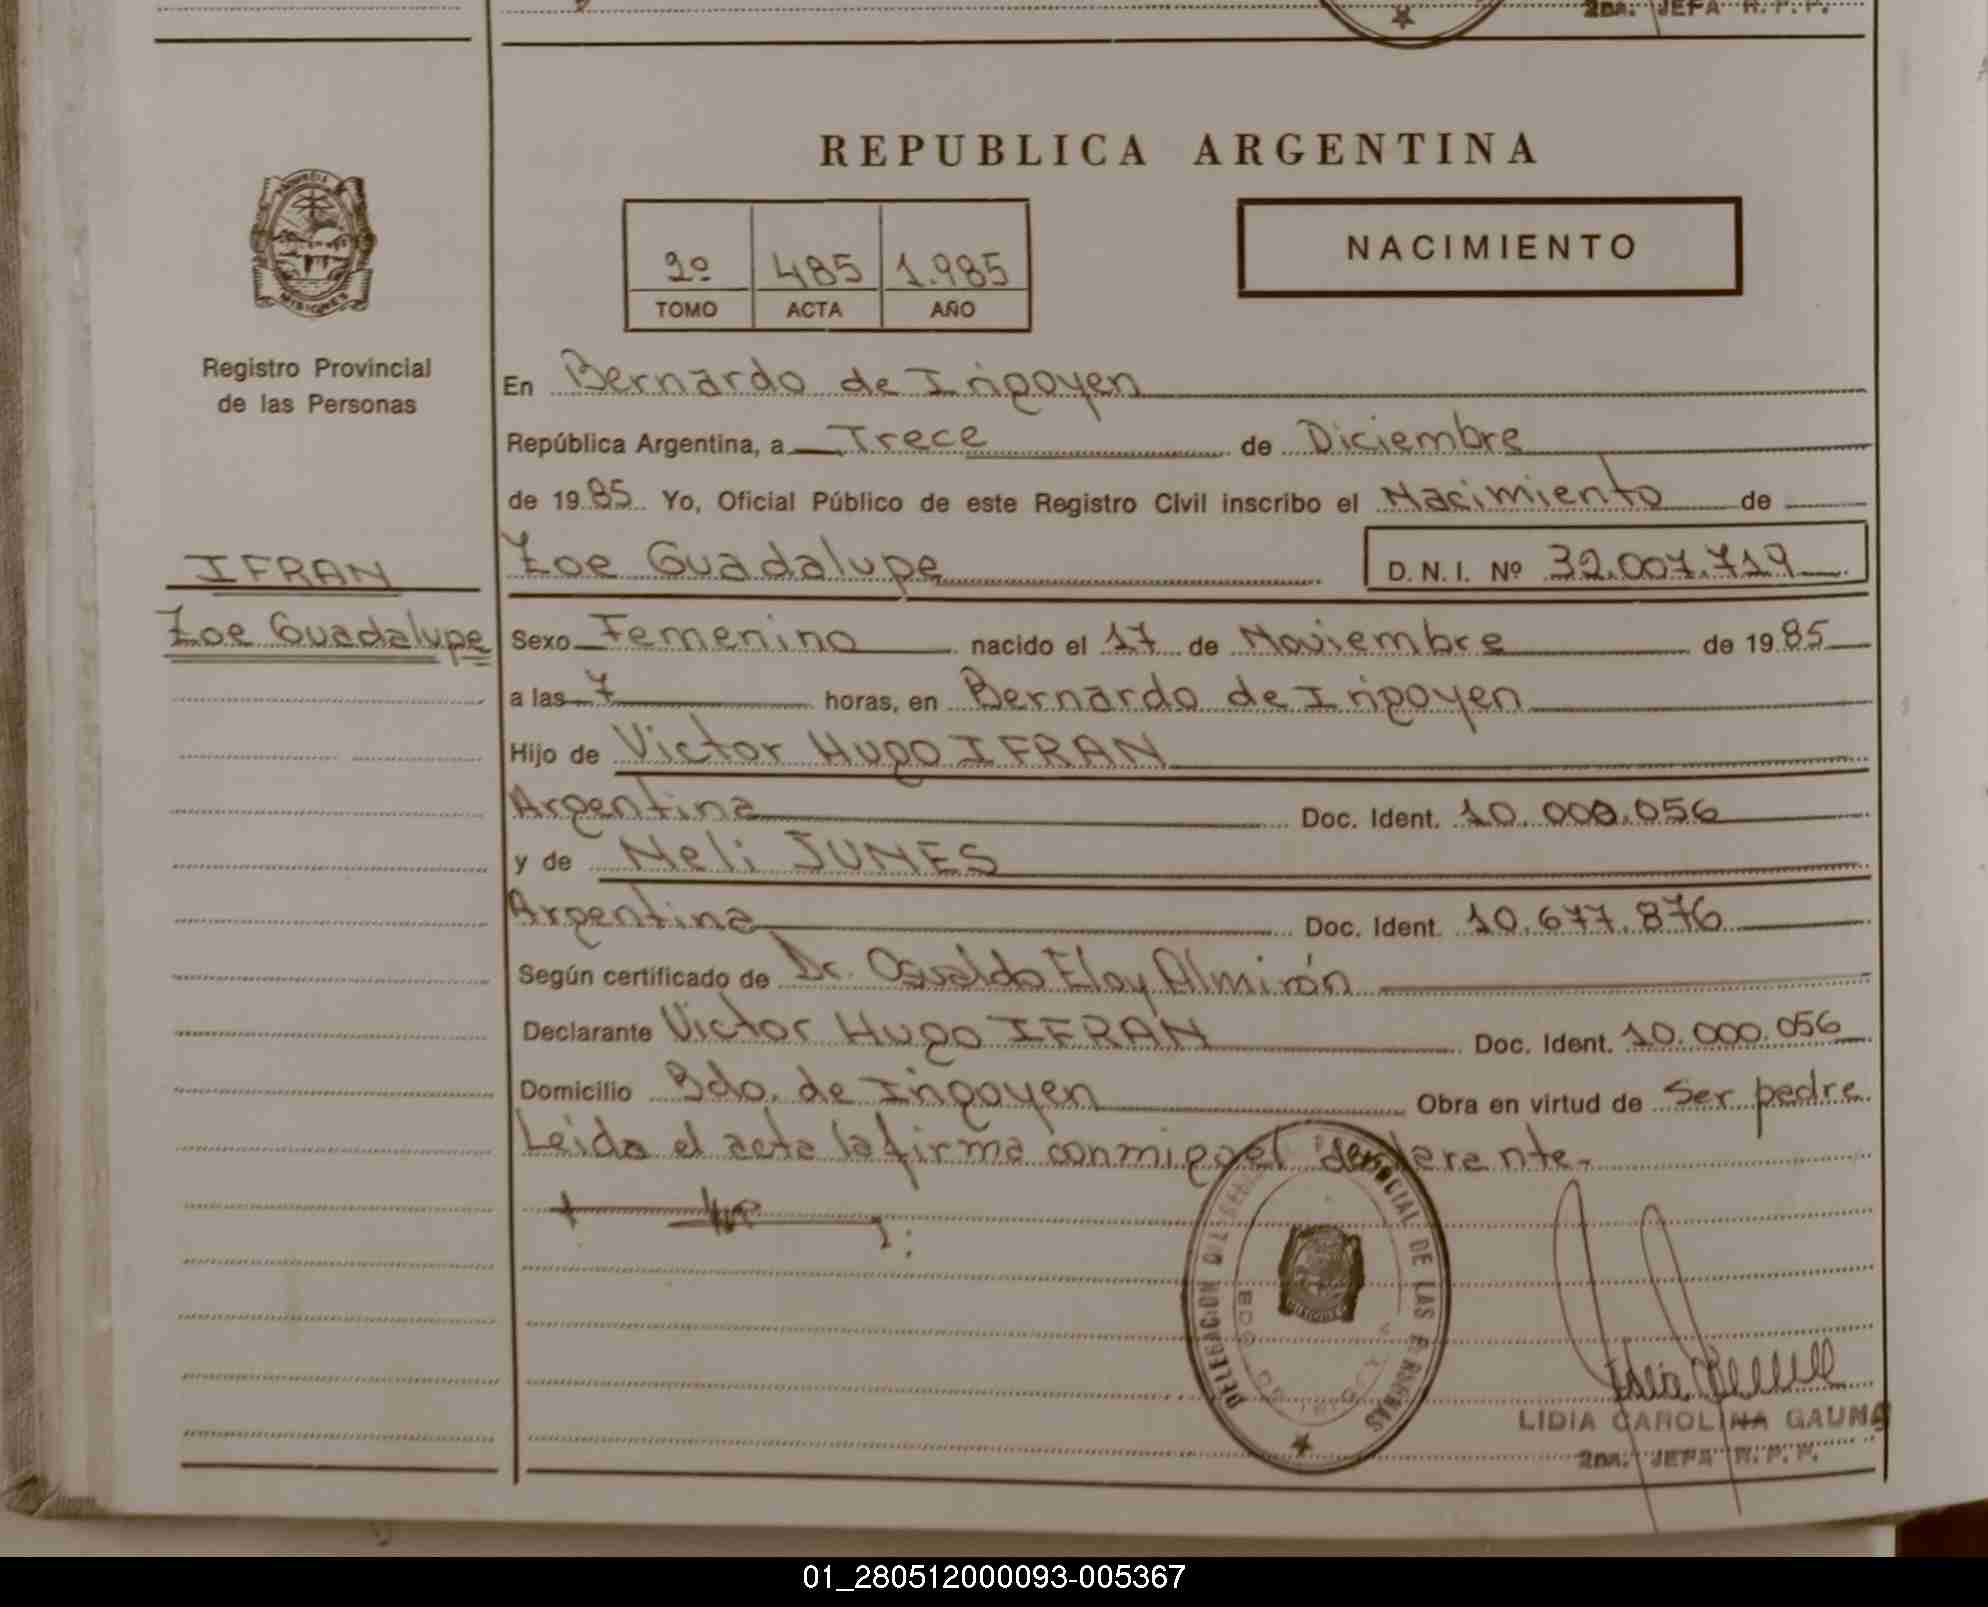 2DA. JEFA R.P.P.
REPUBLICA ARGENTINA
PROVINCIA DE
MISIONES
2º 485 1.985
TOMO ACTA AÑO
NACIMIENTO
Registro Provincial
de las Personas
En Bernardo de Irigoyen
República Argentina, a Trece de Diciembre
de 1985 Yo, Oficial Público de este Registro Civil inscribo el Nacimiento de
Zoe Guadalupe D.N.I. Nº 32.007.719
IFRAN
Zoe Guadalupe
Sexo Femenino nacido el 17 de Noviembre de 1985
a las 7 horas, en Bernardo de Irigoyen
Hijo de Victor Hugo IFRAN
Argentina Doc. Ident. 10.000.056
y de Neli JUNES
Argentina Doc. Ident. 10.677.876
Según certificado de Dr. Osvaldo Eloy Almirón
Declarante Victor Hugo IFRAN Doc. Ident. 10.000.056
Domicilio Bdo. de Irigoyen Obra en virtud de ser padre
Leida el acta la firma conmigo el
DELEGACION PROVINCIAL DE LAS PERSONAS
BDO DE IRIGOYEN
MISIONES
LIDIA CAROLINA GAUNA
2DA. JEFA R.P.P.
01_280512000093-005367